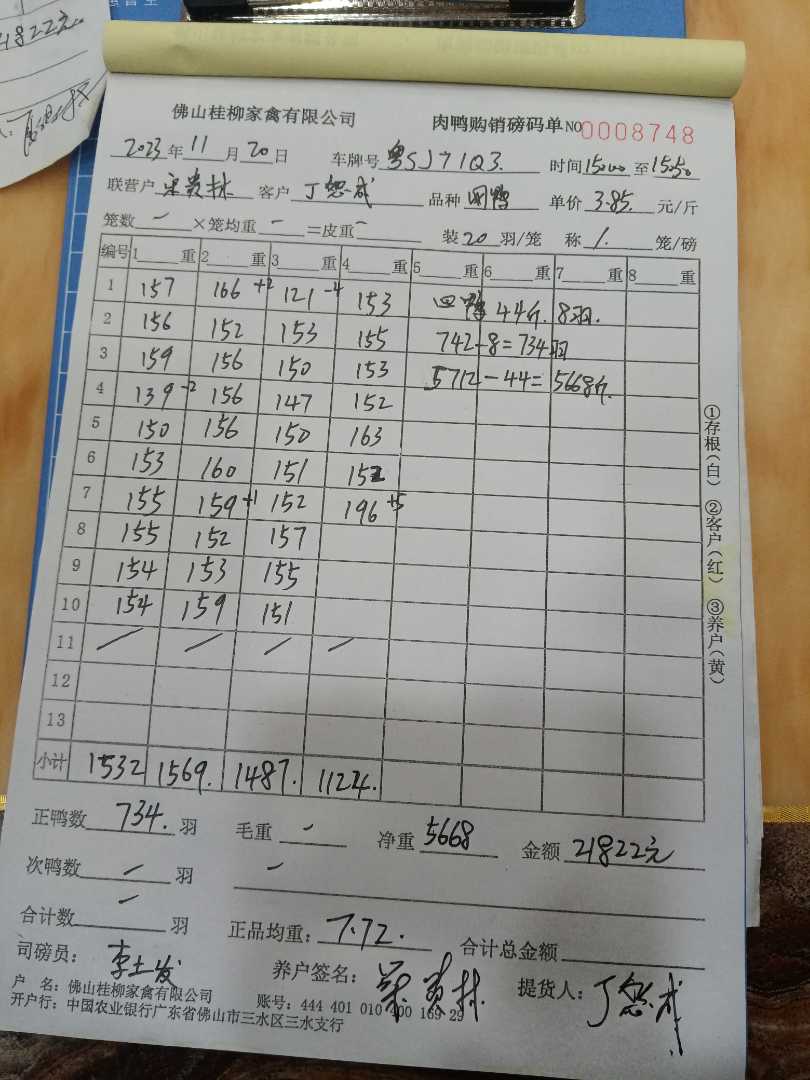 21822元
佛山桂柳家禽有限公司 肉鸭购销磅码单 NO 0008748
2023年11月20日 车牌号 粤SJ71Q3. 时间15:00至15:50
联营户 客户 丁 成 品种 鸭 单价 3.85 元/斤
笼数 一 ×笼均重 一 =皮重 一 装20羽/笼 称 1. 笼/磅
编号 1 重 2 重 3 重 4 重 5 重 6 重 7 重 8 重
1 157 166+2 121-4 153 回鸭 44斤. 8羽.
2 156 152 153 155 742-8=734羽
3 159 156 150 153 5712-44=5668斤.
4 139-2 156 147 152
5 150 156 150 163
6 153 160 151 152
7 155 159+1 152 196+5
8 155 152 157
9 154 153 155
10 154 159 151
11 / / / /
12
13
小计 1532 1569. 1487. 1124.
正鸭数 734. 羽 毛重 一 净重 5668 金额 21822元
次鸭数 一 羽 一
合计数 一 羽 正品均重: 7.72. 合计总金额
司磅员: 李土发 养户签名: 提货人: 丁 成
户 名: 佛山桂柳家禽有限公司 账号: 444 401 010 400 169 29
开户行: 中国农业银行广东省佛山市三水区三水支行
①存根(白) ②客户(红) ③养户(黄)